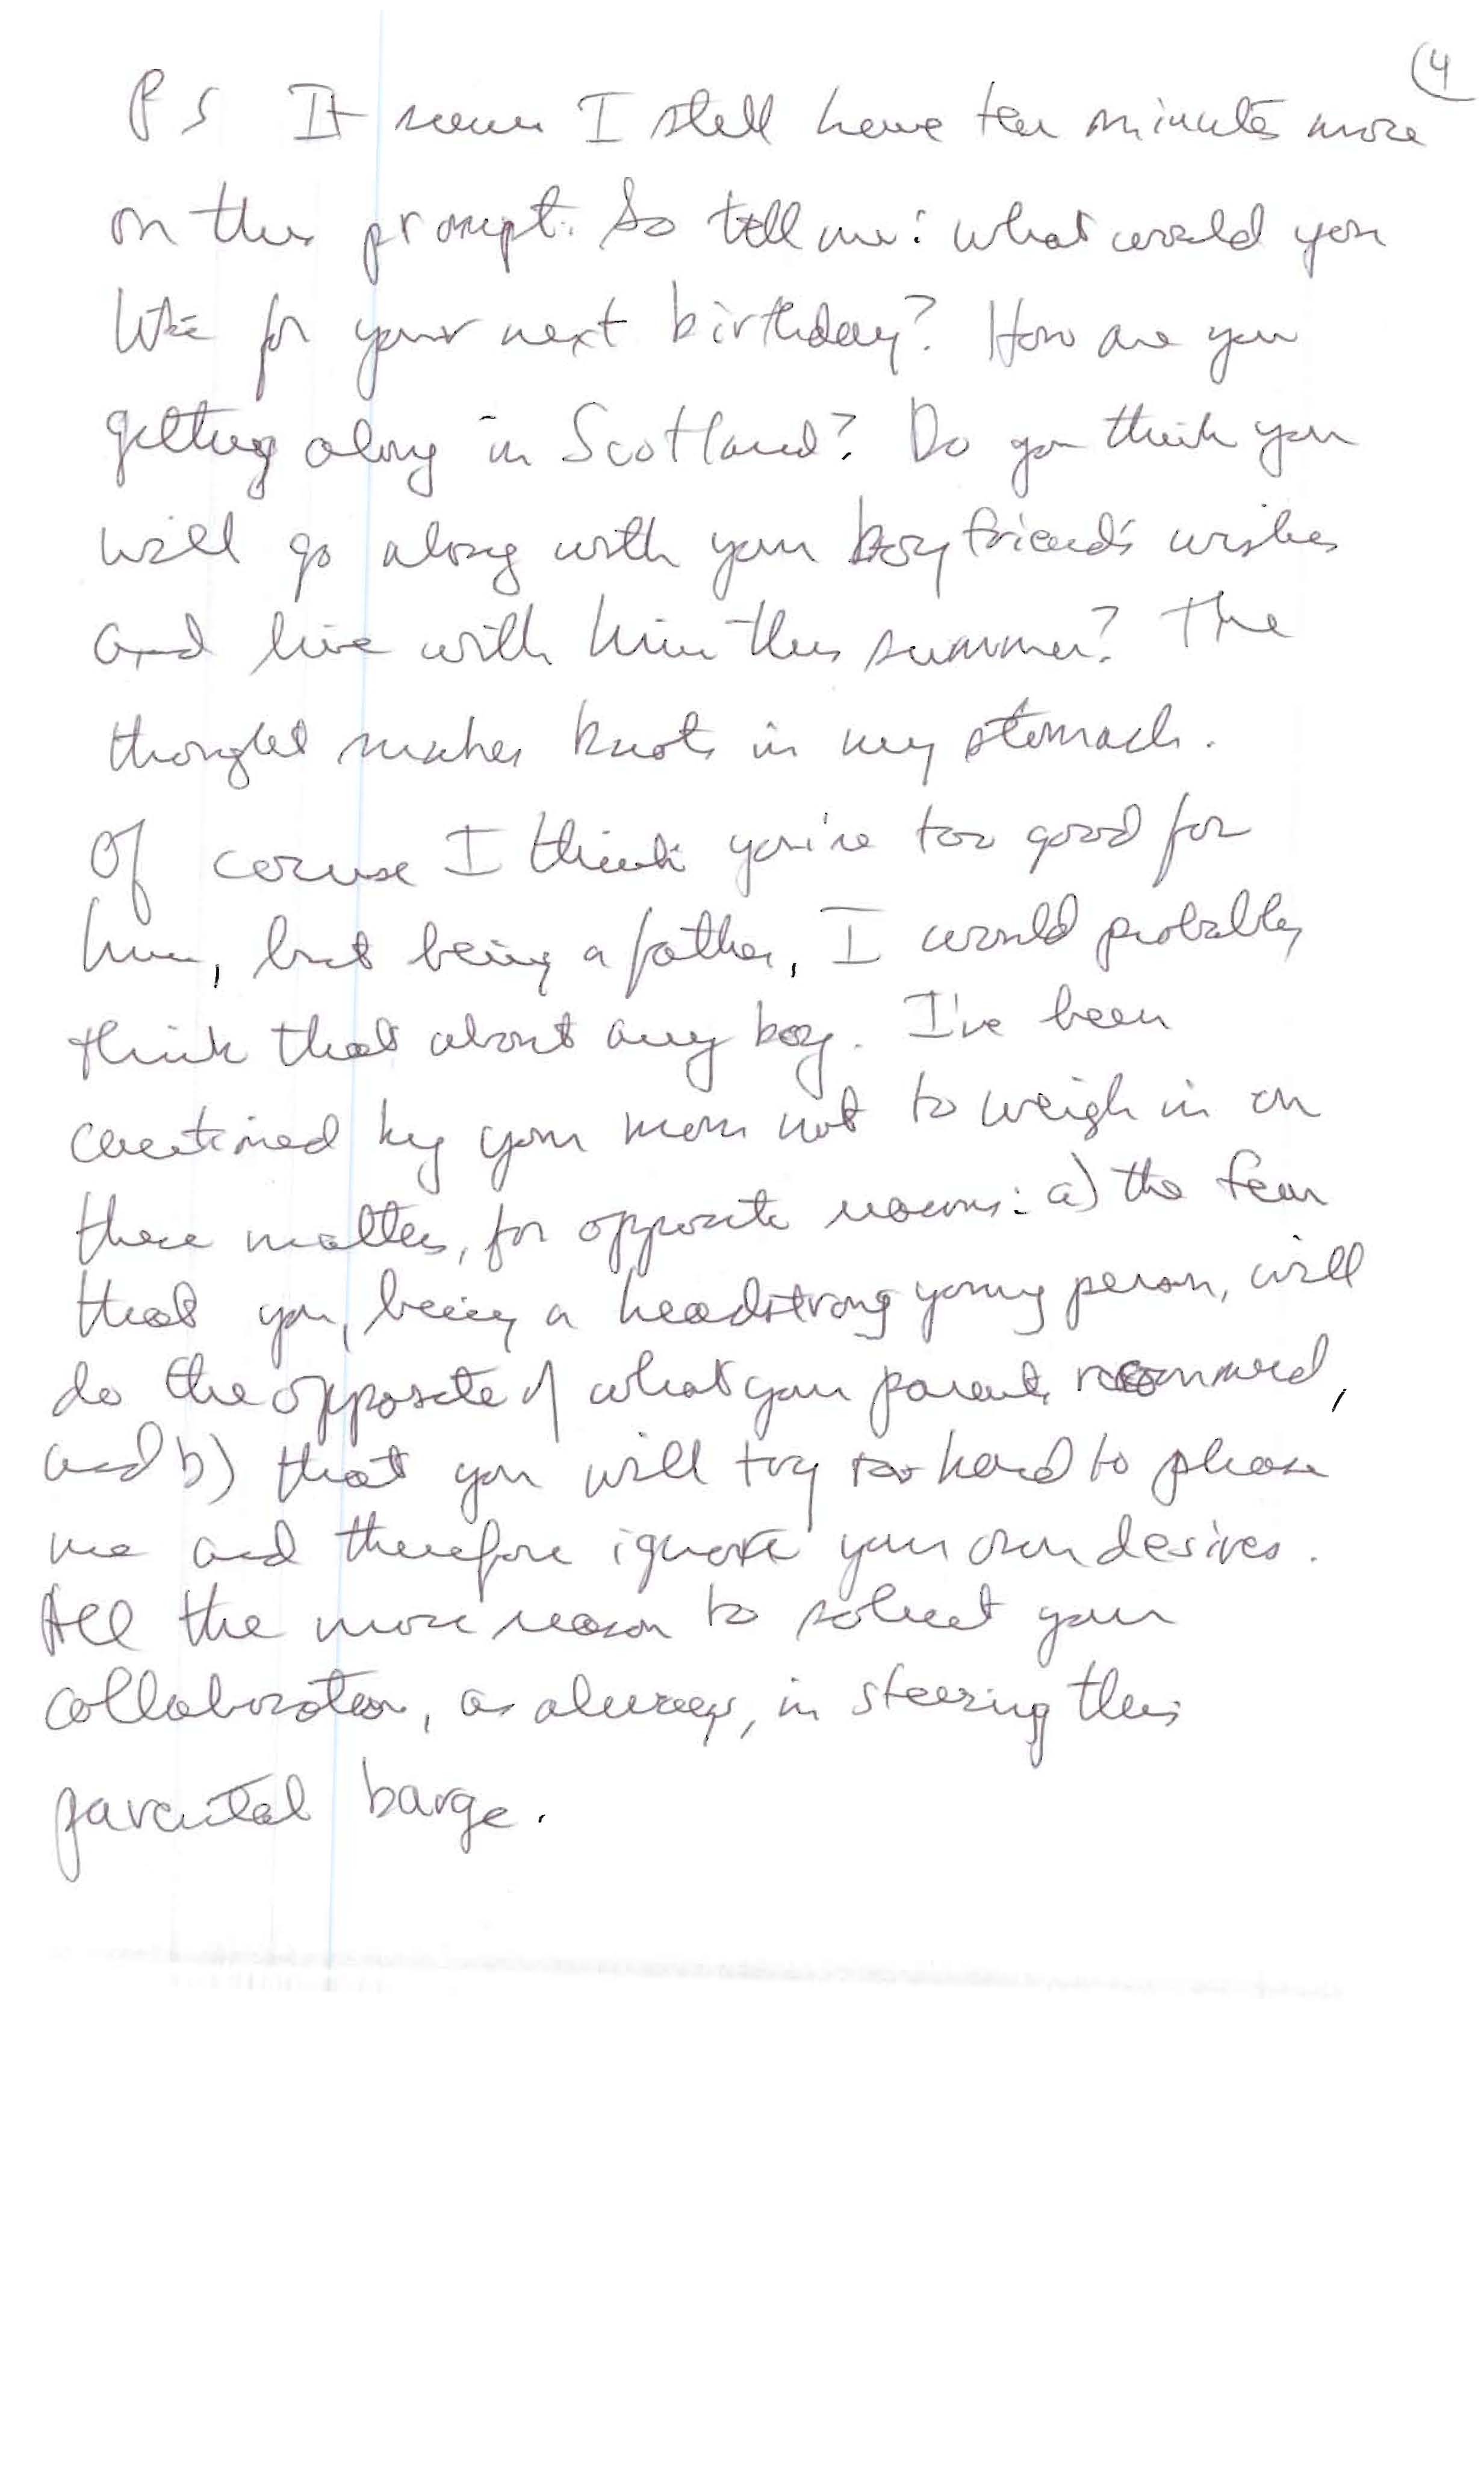 (4
PS It seems I still have ten minutes more
on this prompt. So tell me: what would you
like for your next birthday? How are you
getting along in Scotland? Do you think you
will go along with your boyfriend's wishes
and live with him this summer? The
thought makes knots in my stomach.
Of course I think you're too good for
him, but being a father, I would probably
think that about any boy. I've been
cautioned by your mom not to weigh in on
these matters, for opposite reasons: a) the fear
that you, being a headstrong young person, will
do the opposite of what your parents recommend,
and b) that you will try too hard to please
me and therefore ignore your own desires.
All the more reason to solicit your
collaboration, as always, in steering this
parental barge.